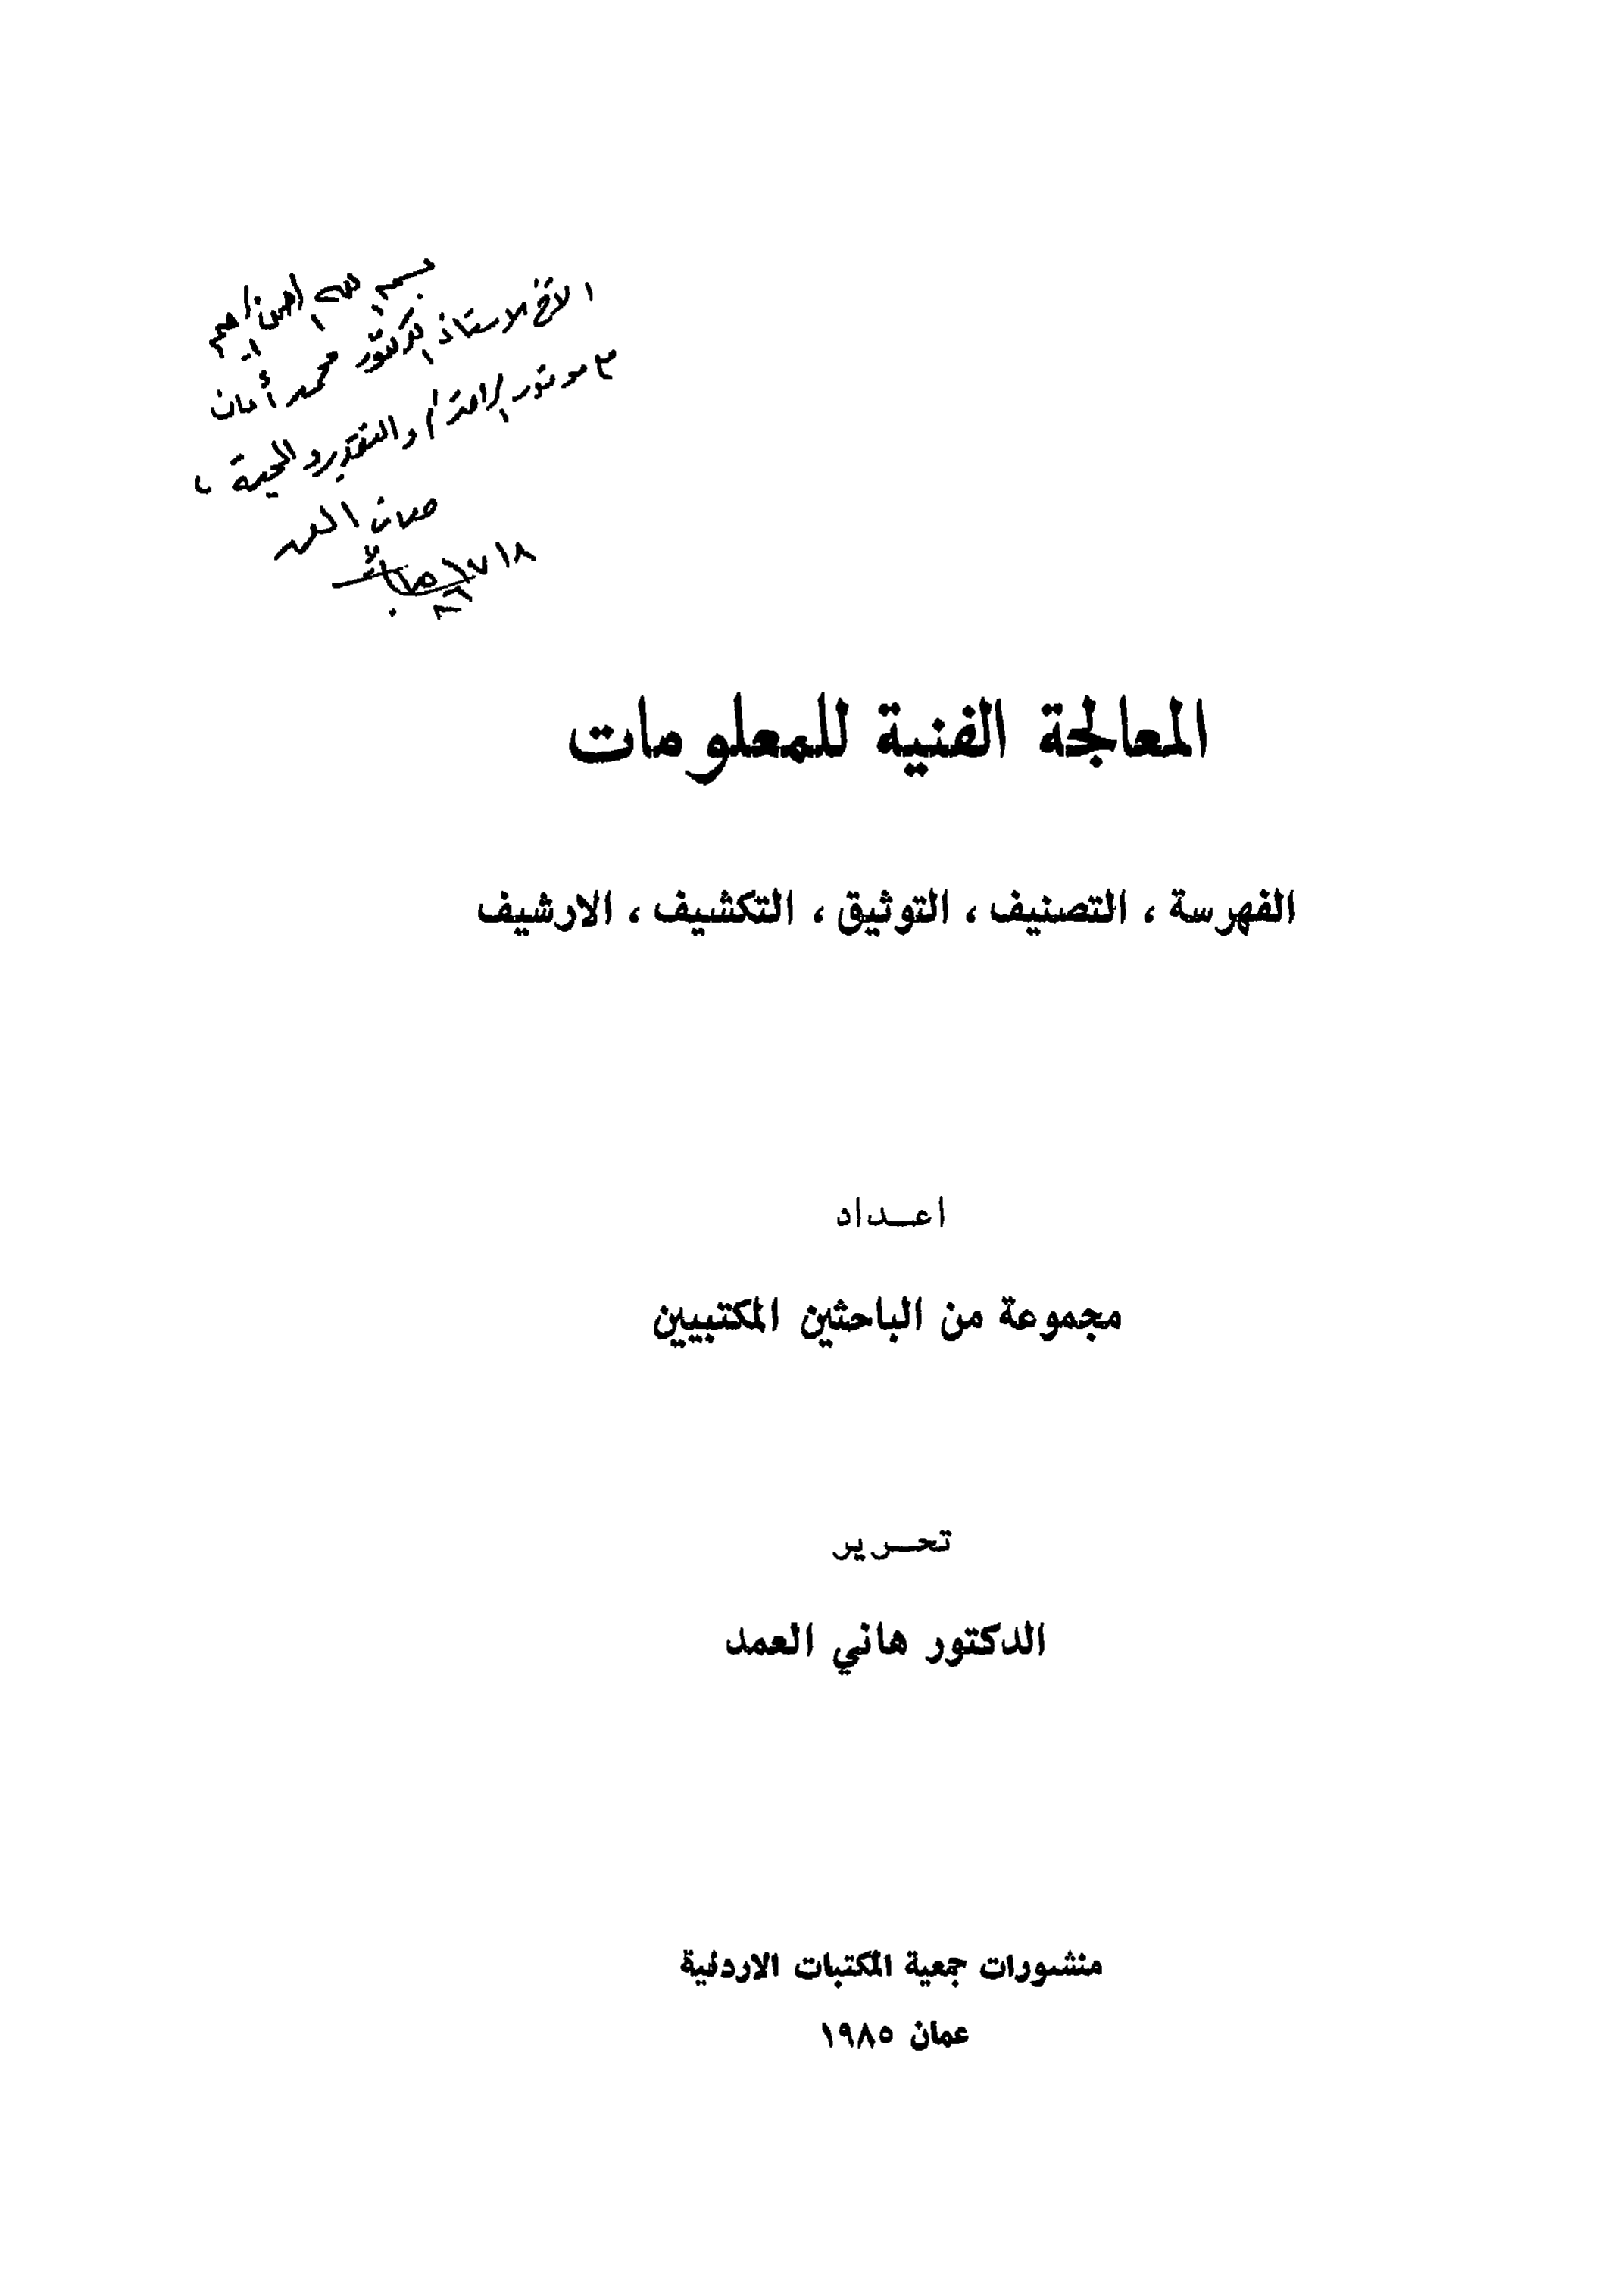 بسم الله الرحمن الرحيم
الأخ الاستاذ الدكتور محمد أمان
مع موفور الاحترام والتقدير والمحبة ،
المعالجة الفنية للمعلومات
الفهرسة ، التصنيف ، التوثيق ، التكشيف ، الارشيف
اعـداد
مجموعة من الباحثين المكتبيين
تحـرير
الدكتور هاني العمد
منشورات جمعية المكتبات الاردنية
عمان ١٩٨٥